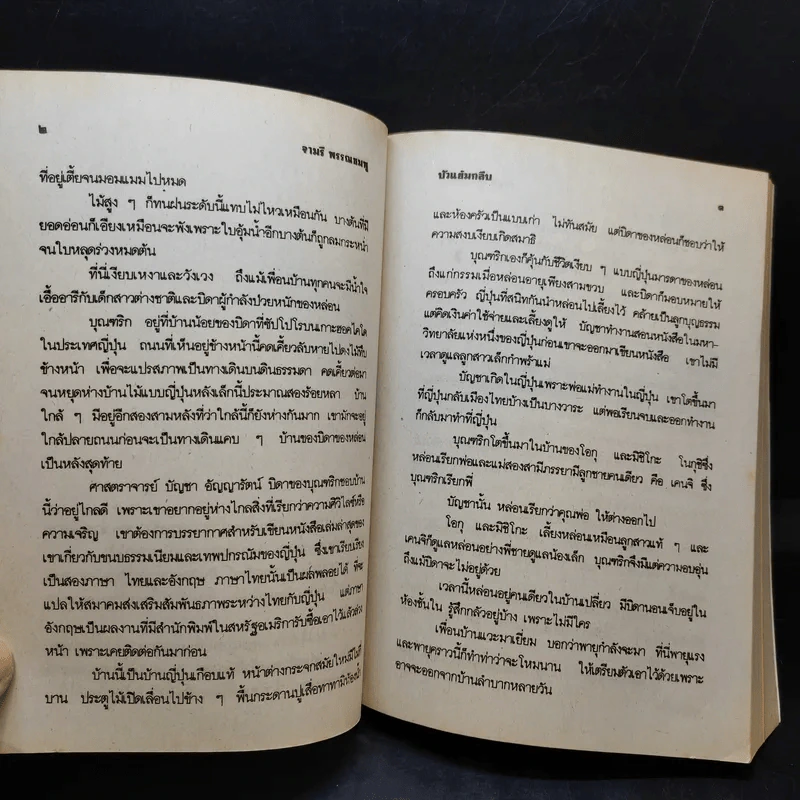 ๒
จามรี พรรณชมพู
ที่อยู่เตี้ยจนมอมแมมไปหมด
ไม้สูง ๆ ก็ทนฝนระดับนี้แทบไม่ไหวเหมือนกัน บางต้นที่มี
ยอดอ่อนก็เอียงเหมือนจะพังเพราะใบอุ้มน้ำอีกบางต้นก็ถูกลมกระหน่ำ
จนใบหลุดร่วงหมดต้น
ที่นี่เงียบเหงาและวังเวง ถึงแม้เพื่อนบ้านทุกคนจะมีน้ำใจ
เอื้ออารีกับเด็กสาวต่างชาติและบิดาผู้กำลังป่วยหนักของหล่อน
บุณฑริก อยู่ที่บ้านน้อยของบิดาที่ซัปโปโรบนเกาะฮอคไคโด
ในประเทศญี่ปุ่น ถนนที่เห็นอยู่ข้างหน้านี้คดเคี้ยวลับหายไปดงไม้ทึบ
ข้างหน้า เพื่อจะแปรสภาพเป็นทางเดินบนดินธรรมดา คดเคี้ยวต่อมา
จนหยุดห่างบ้านไม้แบบญี่ปุ่นหลังเล็กนี้ประมาณสองร้อยหลา บ้าน
ใกล้ ๆ มีอยู่อีกสองสามหลังที่ว่าใกล้นี้ก็ยังห่างกันมาก เขามักจะอยู่
ใกล้ปลายถนนก่อนจะเป็นทางเดินแคบ ๆ บ้านของบิดาของหล่อน
เป็นหลังสุดท้าย
ศาสตราจารย์ บัญชา อัญญารัตน์ บิดาของบุณฑริกชอบบ้าน
นี้ว่าอยู่ไกลดี เพราะเขาอยากอยู่ห่างไกลสิ่งที่เรียกว่าความศิวิไลซ์หรือ
ความเจริญ เขาต้องการบรรยากาศสำหรับเขียนหนังสือเล่มล่าสุดของ
เขาเกี่ยวกับขนบธรรมเนียมและเทพปกรณัมของญี่ปุ่น ซึ่งเขาเรียบเรียง
เป็นสองภาษา ไทยและอังกฤษ ภาษาไทยนั้นเป็นผลพลอยได้ ที่จะ
แปลให้สมาคมส่งเสริมสัมพันธภาพระหว่างไทยกับญี่ปุ่น แต่ภาษา
อังกฤษเป็นผลงานที่มีสำนักพิมพ์ในสหรัฐอเมริการับซื้อเอาไว้แล้วล่วง
หน้า เพราะเคยติดต่อกันมาก่อน
บ้านนี้เป็นบ้านญี่ปุ่นเกือบแท้ หน้าต่างกระจกสมัยใหม่มีไม่กี่
บาน ประตูไม้เปิดเลื่อนไปข้าง ๆ พื้นกระดานปูเสื่อทาทามิห้องน้ำ
บัวแย้มกลีบ
๓
และห้องครัวเป็นแบบเก่า ไม่ทันสมัย แต่บิดาของหล่อนก็ชอบว่าให้
ความสงบเงียบเกิดสมาธิ
บุณฑริกเองก็คุ้นกับชีวิตเงียบ ๆ แบบญี่ปุ่นมารดาของหล่อน
ถึงแก่กรรมเมื่อหล่อนอายุเพียงสามขวบ และบิดาก็มอบหมายให้
ครอบครัว ญี่ปุ่นที่สนิทกันนำหล่อนไปเลี้ยงไว้ คล้ายเป็นลูกบุญธรรม
แต่คิดเงินค่าใช้จ่ายและเลี้ยงดูให้ บัญชาทำงานสอนหนังสือในมหา-
วิทยาลัยแห่งหนึ่งของญี่ปุ่นก่อนเขาจะออกมาเขียนหนังสือ เขาไม่มี
เวลาดูแลลูกสาวเล็กกำพร้าแม่
บัญชาเกิดในญี่ปุ่นเพราะพ่อแม่ทำงานในญี่ปุ่น เขาโตขึ้นมา
ที่ญี่ปุ่นกลับเมืองไทยบ้างเป็นบางวาระ แต่พอเรียนจบและออกทำงาน
ก็กลับมาทำที่ญี่ปุ่น
บุณฑริกโตขึ้นมาในบ้านของโอกุ และมิชิโกะ โนกุชิซึ่ง
หล่อนเรียกพ่อและแม่สองสามีภรรยามีลูกชายคนเดียว คือ เคนจิ ซึ่ง
บุณฑริกเรียกพี่
บัญชานั้น หล่อนเรียกว่าคุณพ่อ ให้ต่างออกไป
โอกุ และมิชิโกะ เลี้ยงหล่อนเหมือนลูกสาวแท้ ๆ และ
เคนจิก็ดูแลหล่อนอย่างพี่ชายดูแลน้องเล็ก บุณฑริกจึงมีแต่ความอบอุ่น
ถึงแม้บิดาจะไม่อยู่ด้วย
เวลานี้หล่อนอยู่คนเดียวในบ้านเปลี่ยว มีบิดานอนเจ็บอยู่ใน
ห้องชั้นใน รู้สึกกลัวอยู่บ้าง เพราะไม่มีใคร
เพื่อนบ้านแวะมาเยี่ยม บอกว่าพายุกำลังจะมา ที่นี่พายุแรง
และพายุคราวนี้ก็ทำท่าว่าจะโหมนาน ให้เตรียมตัวเอาไว้ด้วยเพราะ
อาจจะออกจากบ้านลำบากหลายวัน